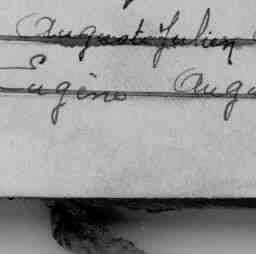 Auguste Julien
Eugène Augu